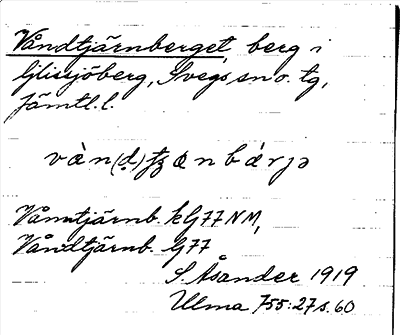 Våndtjärnberget, berg i
Glissjöberg, Svegs sn o. tg,
Jämtl. l.
Vånntjärnb. kG77 NM,
Våndtjärnb. G77
S. Åsander 1919
Ulma 755:27 s. 60